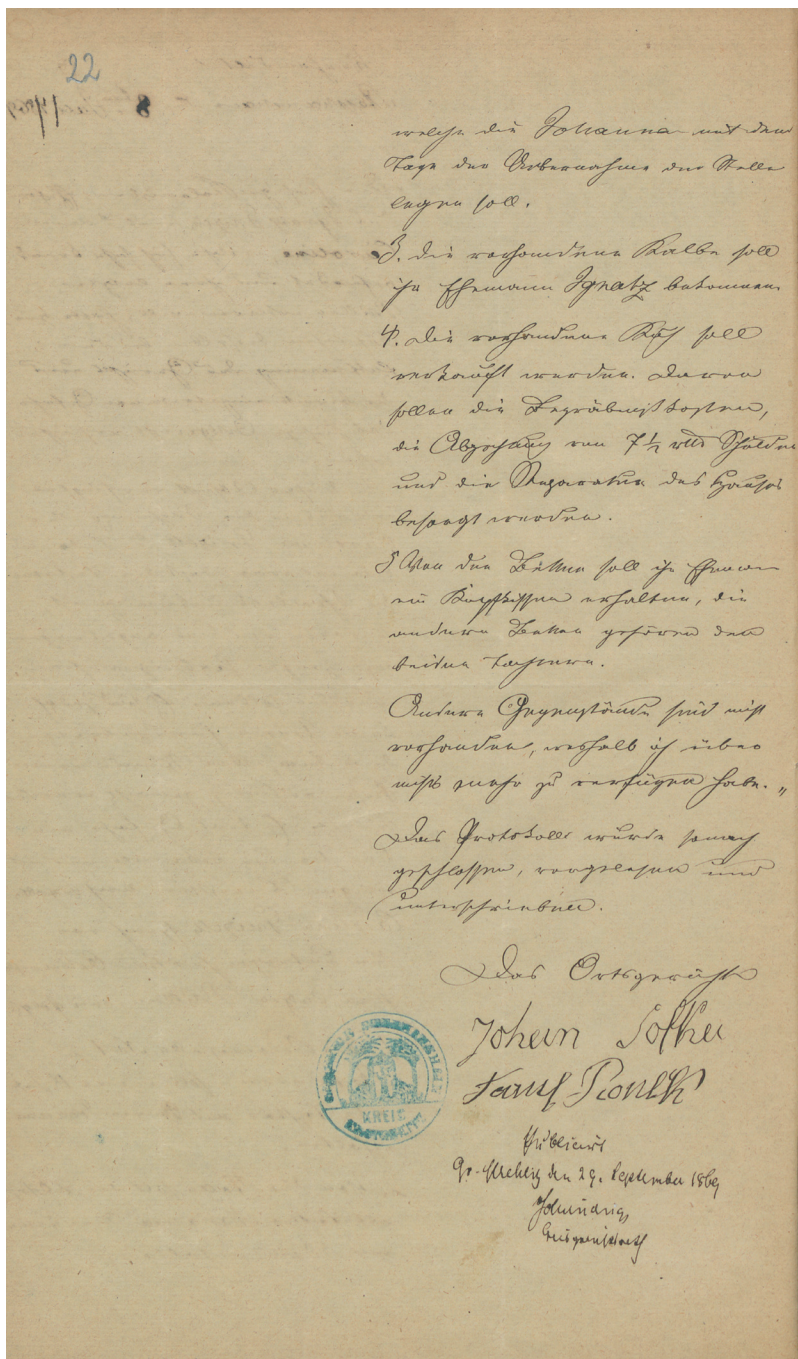 22
welche die Johanna mit dem
Tage der Uebernahme der Stelle
legen soll.
3. die vorhandene Kalbe soll
ihr Ehemann Ignatz bekommen
4. Die vorhandene Kuh soll
verkauft werden. Davon
sollen die Begräbnißkosten,
die Abzahlung von 7 1/2 rtl Schulden
und die Reparatur des Hauses
besorgt werden.
5 Von den Betten soll ihr Ehemann
ein Kopfkissen erhalten, die
anderen Betten gehören den
beiden Töchtern.
Andere Gegenstände sind nicht
vorhanden, weshalb ich über
nichts mehr zu verfügen habe."
Das Protokoll wurde sonach
geschlossen, vorgelesen und
unterschrieben.
Das Ortsgericht
Johan
KREIS
Publicirt
Gr. Strehlitz den 29. September 1869